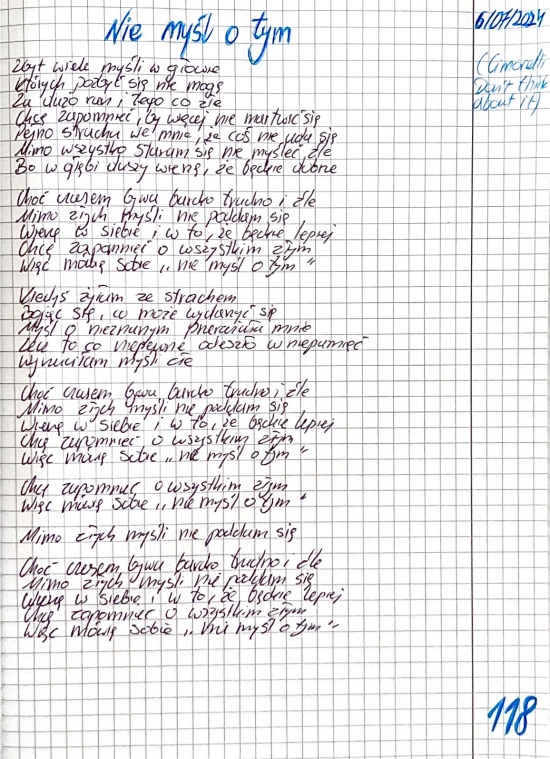 Nie myśl o tym
6/07/2024
(Cimorelli
Don't think
about it)
Zbyt wiele myśli w głowie
których pozbyć się nie mogę
Za dużo ran i tego co złe
Chcę zapomnieć, by więcej nie martwić się
Pełno strachu we mnie, że coś nie uda się
Mimo wszystko staram się nie myśleć źle
Bo w głębi duszy wierzę, że będzie dobrze
Choć czasem bywa bardzo trudno i źle
Mimo złych myśli nie poddam się
Wierzę w siebie i w to, że będzie lepiej
Chcę zapomnieć o wszystkim złym
Więc mówię sobie „nie myśl o tym"
Kiedyś żyłam ze strachem
Bojąc się, co może wydarzyć się
Myśl o nieznanym przerażała mnie
Lecz to co niepewne odeszło w niepamięć
Wyrzuciłam myśli złe
Choć czasem bywa bardzo trudno i źle
Mimo złych myśli nie poddam się
Wierzę w siebie i w to, że będzie lepiej
Chcę zapomnieć o wszystkim złym
Więc mówię sobie „nie myśl o tym"
Chcę zapomnieć o wszystkim złym
Więc mówię sobie „nie myśl o tym"
Mimo złych myśli nie poddam się
Choć czasem bywa bardzo trudno i źle
Mimo złych myśli nie poddam się
Wierzę w siebie i w to, że będzie lepiej
Chcę zapomnieć o wszystkim złym
Więc mówię sobie „nie myśl o tym"
118